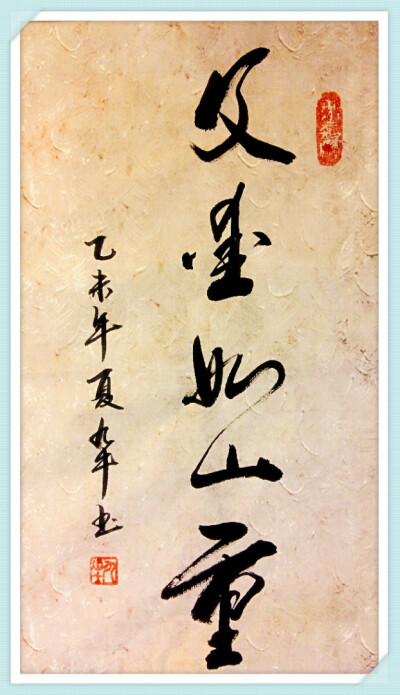 父爱如山重
乙未年夏 书